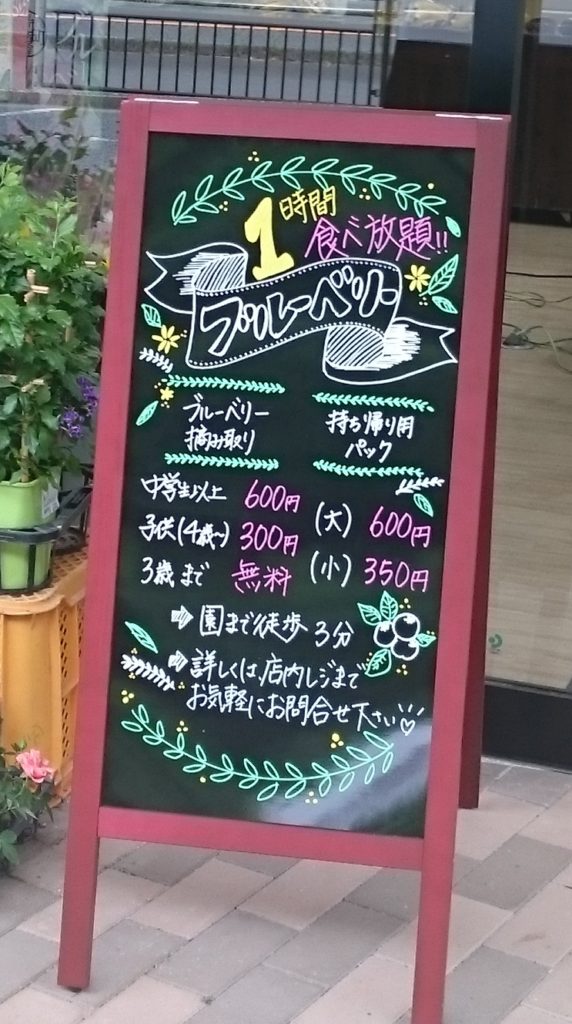 1時間
食べ放題!!
ブルーベリー
ブルーベリー
摘み取り
中学生以上 600円
子供(4歳〜) 300円
3歳まで 無料
持ち帰り用
パック
(大) 600円
(小) 350円
➡ 園まで徒歩 3分
➡ 詳しくは店内レジまで
お気軽にお問合せ下さい♡